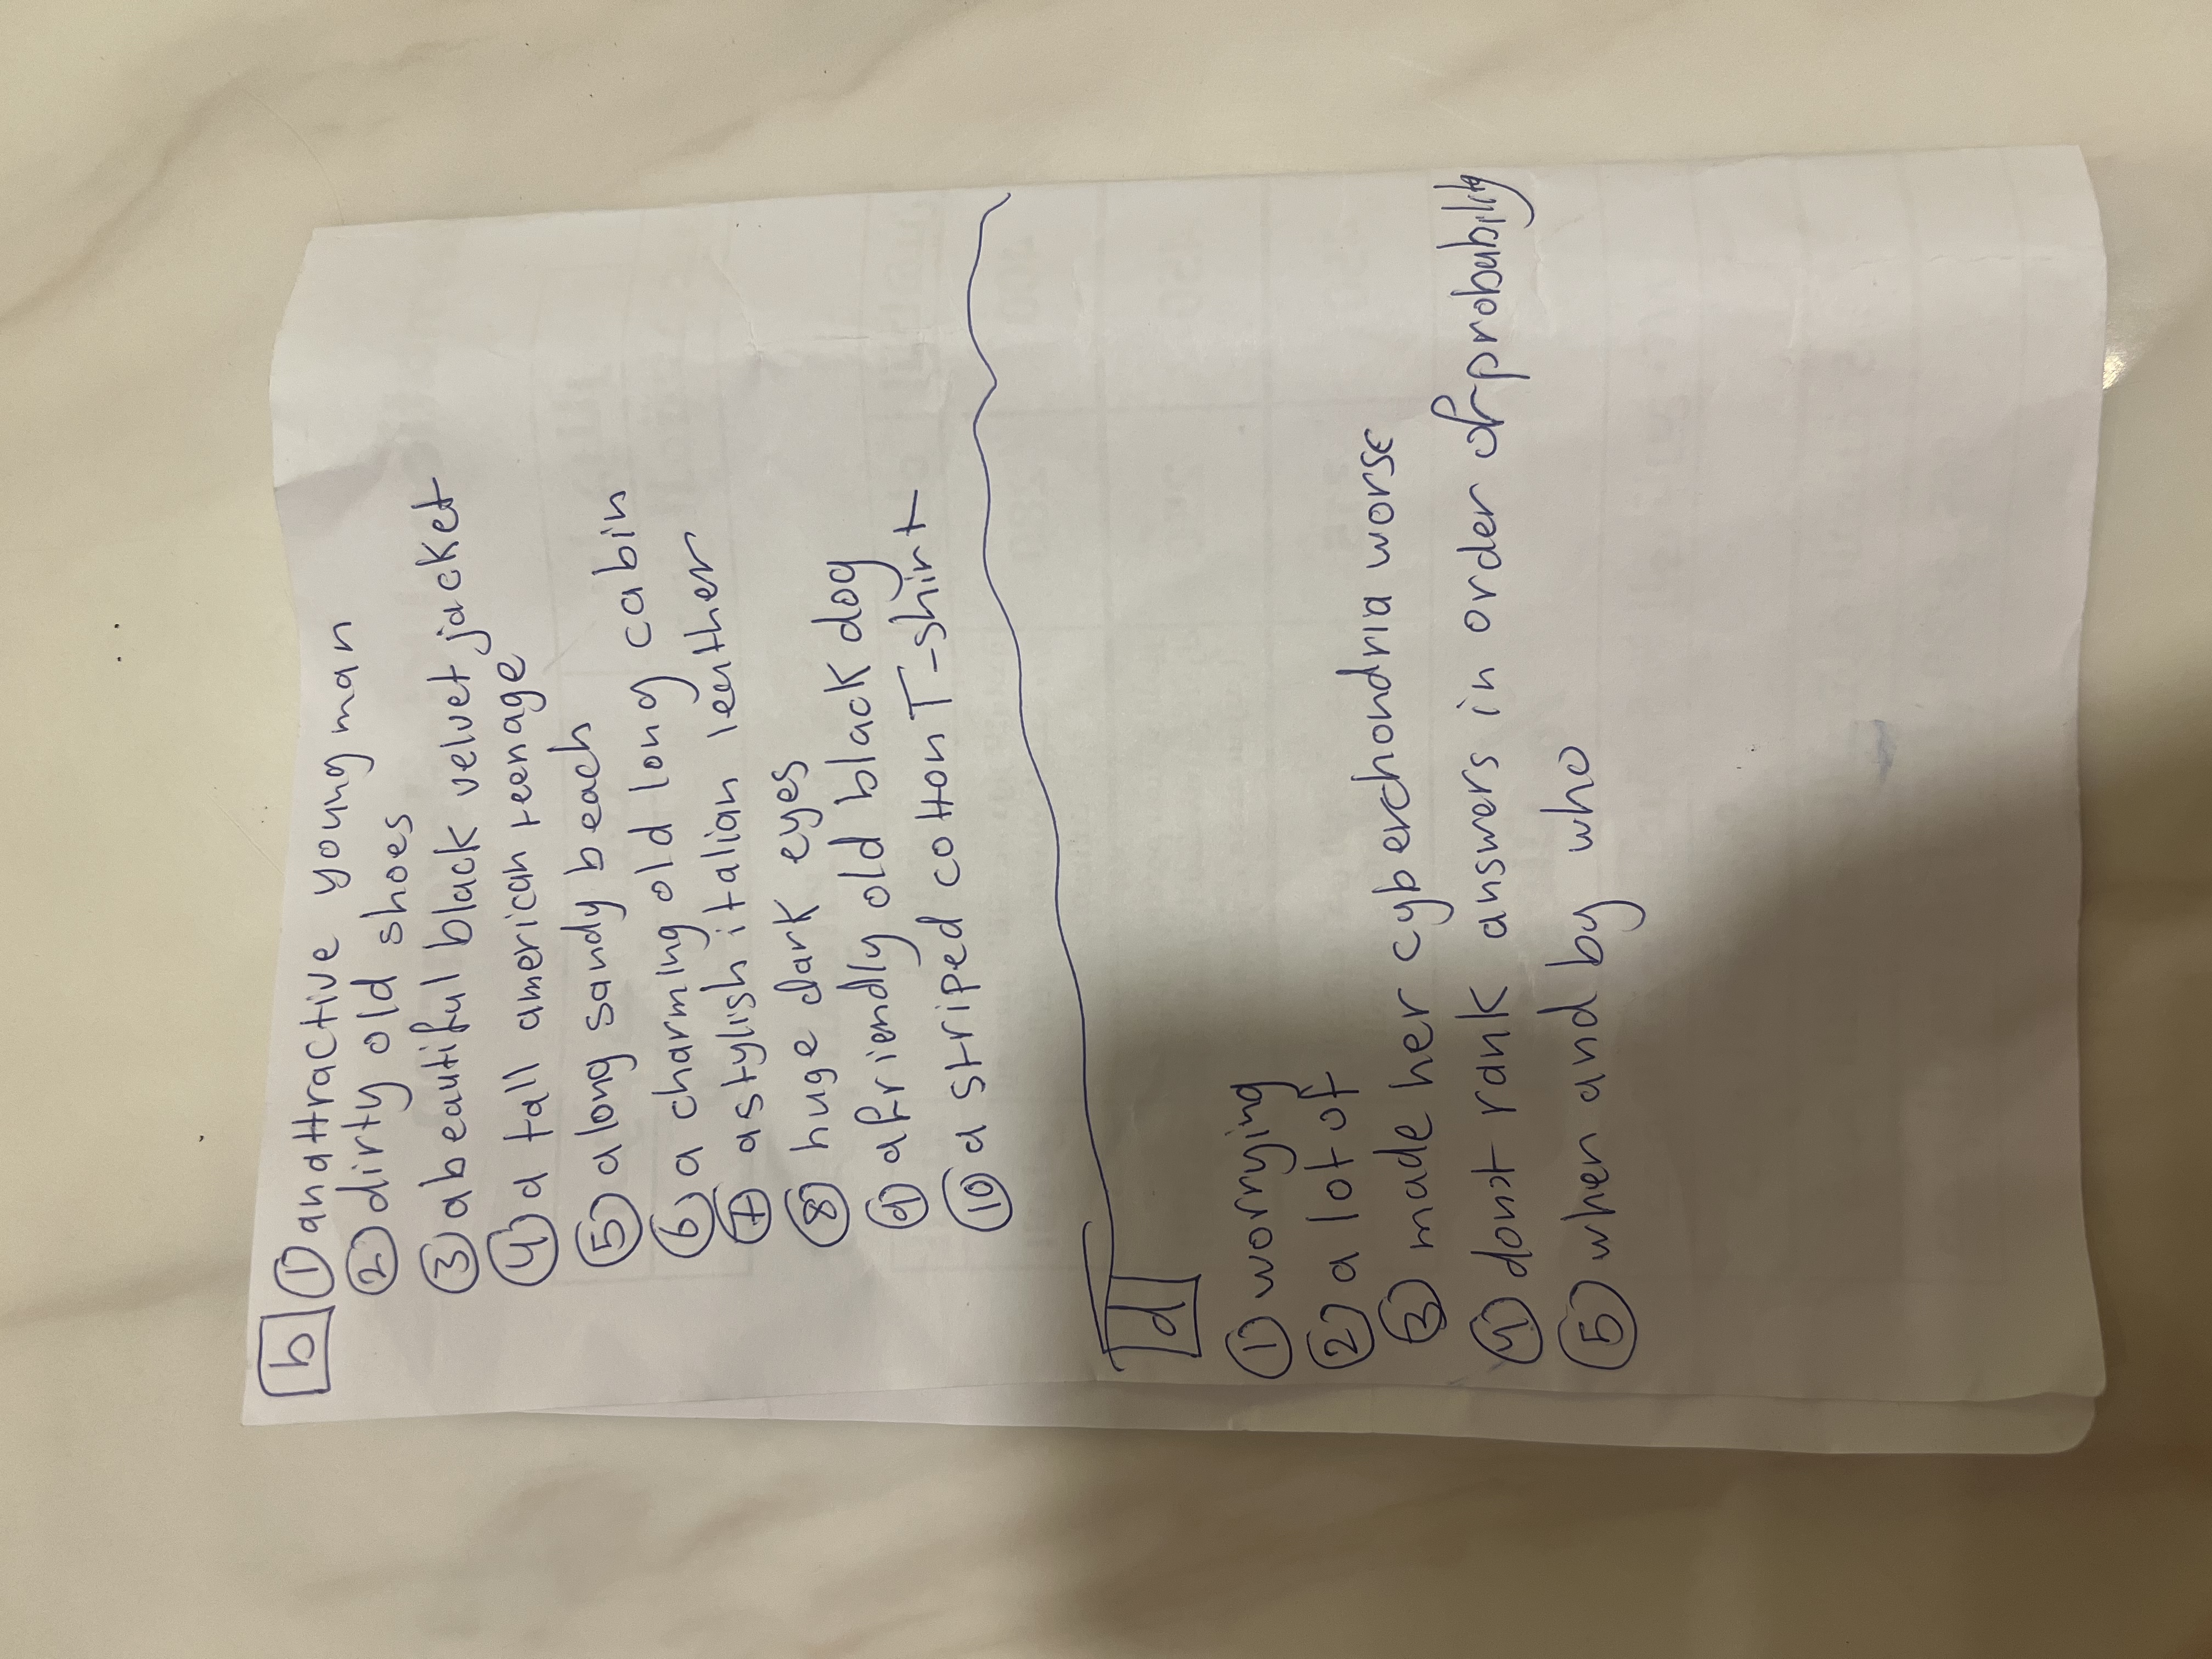 b ① an attractive young man
② dirty old shoes
③ a beautiful black velvet jacket
④ a tall american teenage
⑤ a long sandy beach
⑥ a charming old long cabin
⑦ a stylish italian leather
⑧ huge dark eyes
⑨ a friendly old black dog
⑩ a striped cotton T-shirt
d
① worrying
② a lot of
③ made her cyberchondria worse
④ don't rank answers in order of probability
⑤ when and by who